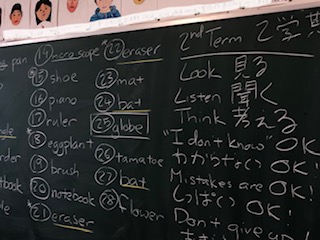 pan
⑮ shoe
⑯ piano
⑰ ruler
⑱ eggplant
⑲ brush
⑳ notebook
㉑ eraser
㉒ eraser
㉓ mat
㉔ bat
㉕ globe
㉖ tamatoe
㉗ bat
㉘ flower
2nd Term 2学期
Look 見る
Listen 聞く
Think 考える
"I don't know" OK!
わからない OK!
Mistakes are OK!
しっぱい OK!
Don't give up